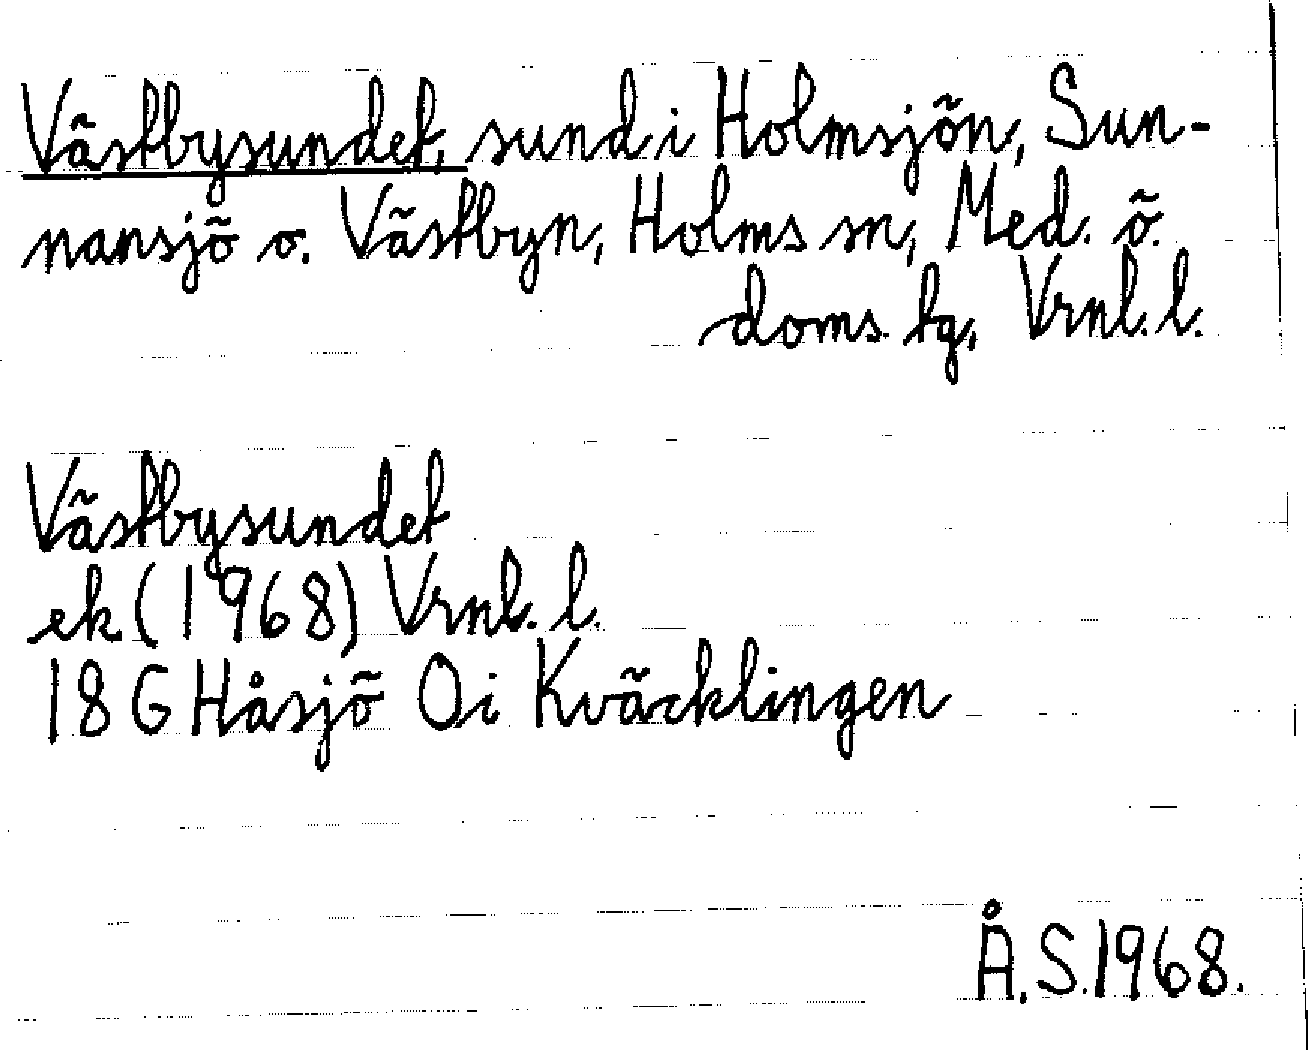 Västbysundet, sund i Holmsjön, Sun-
nansjö o. Västbyn, Holms sn, Med. ö.
doms. tg, Vrnl. l.
Västbysundet
ek (1968) Vrnl. l.
18 G Håsjö Oi Kväcklingen
Å.S. 1968.